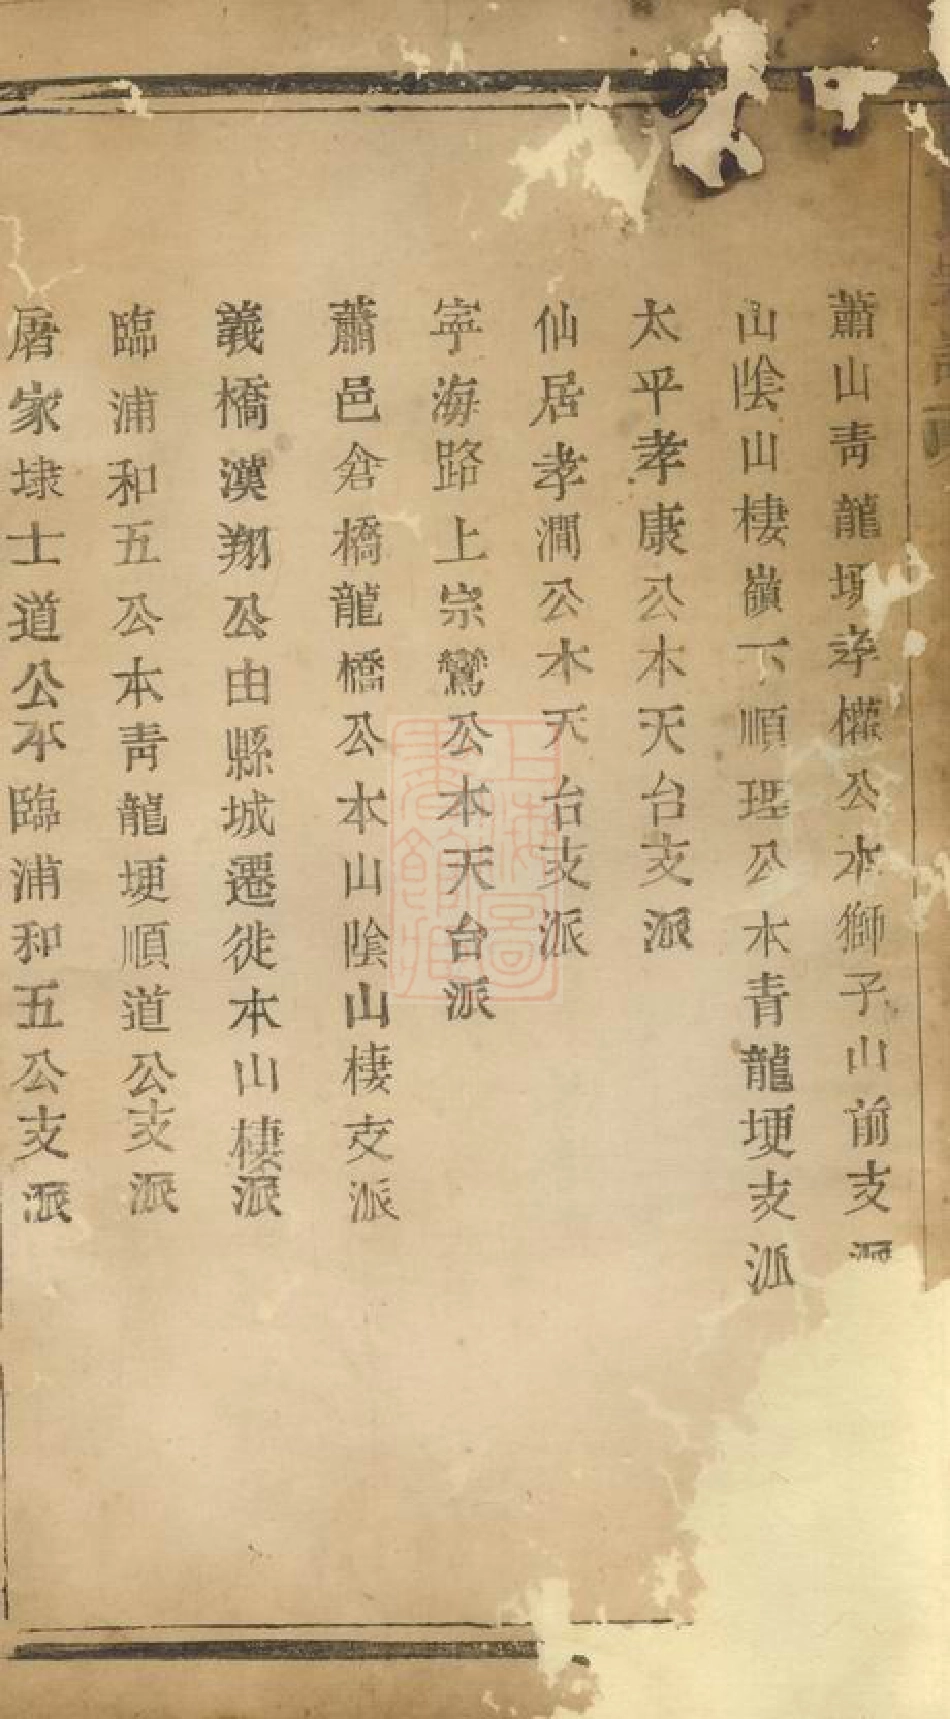 蕭山青龍埂孝權公本獅子山前支派
山陰山棲嶺下順理公本青龍埂支派
太平孝康公本天台支派
仙居孝澗公本天台支派
寧海路上宗鸞公本天台派
蕭邑倉橋龍橋公本山陰山棲支派
義橋漢翔公由縣城遷徙本山棲派
臨浦和五公本青龍埂順道公支派
屠家埭士道公本臨浦和五公支派
上海圖書館藏